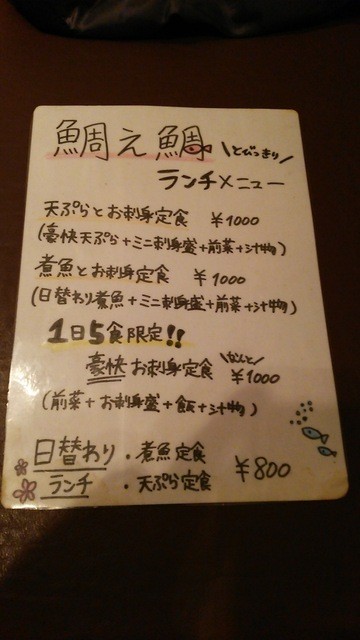 鯛え鯛
\とびっきり/
ランチメニュー
天ぷらとお刺身定食 ¥1000
(豪快天ぷら+ミニ刺身盛+前菜+汁物)
煮魚とお刺身定食 ¥1000
(日替わり煮魚+ミニ刺身盛+前菜+汁物)
1日5食限定!!
豪快お刺身定食 \なんと/ ¥1000
(前菜+お刺身盛+飯+汁物)
日替わり ・煮魚定食
ランチ ・天ぷら定食 ¥800